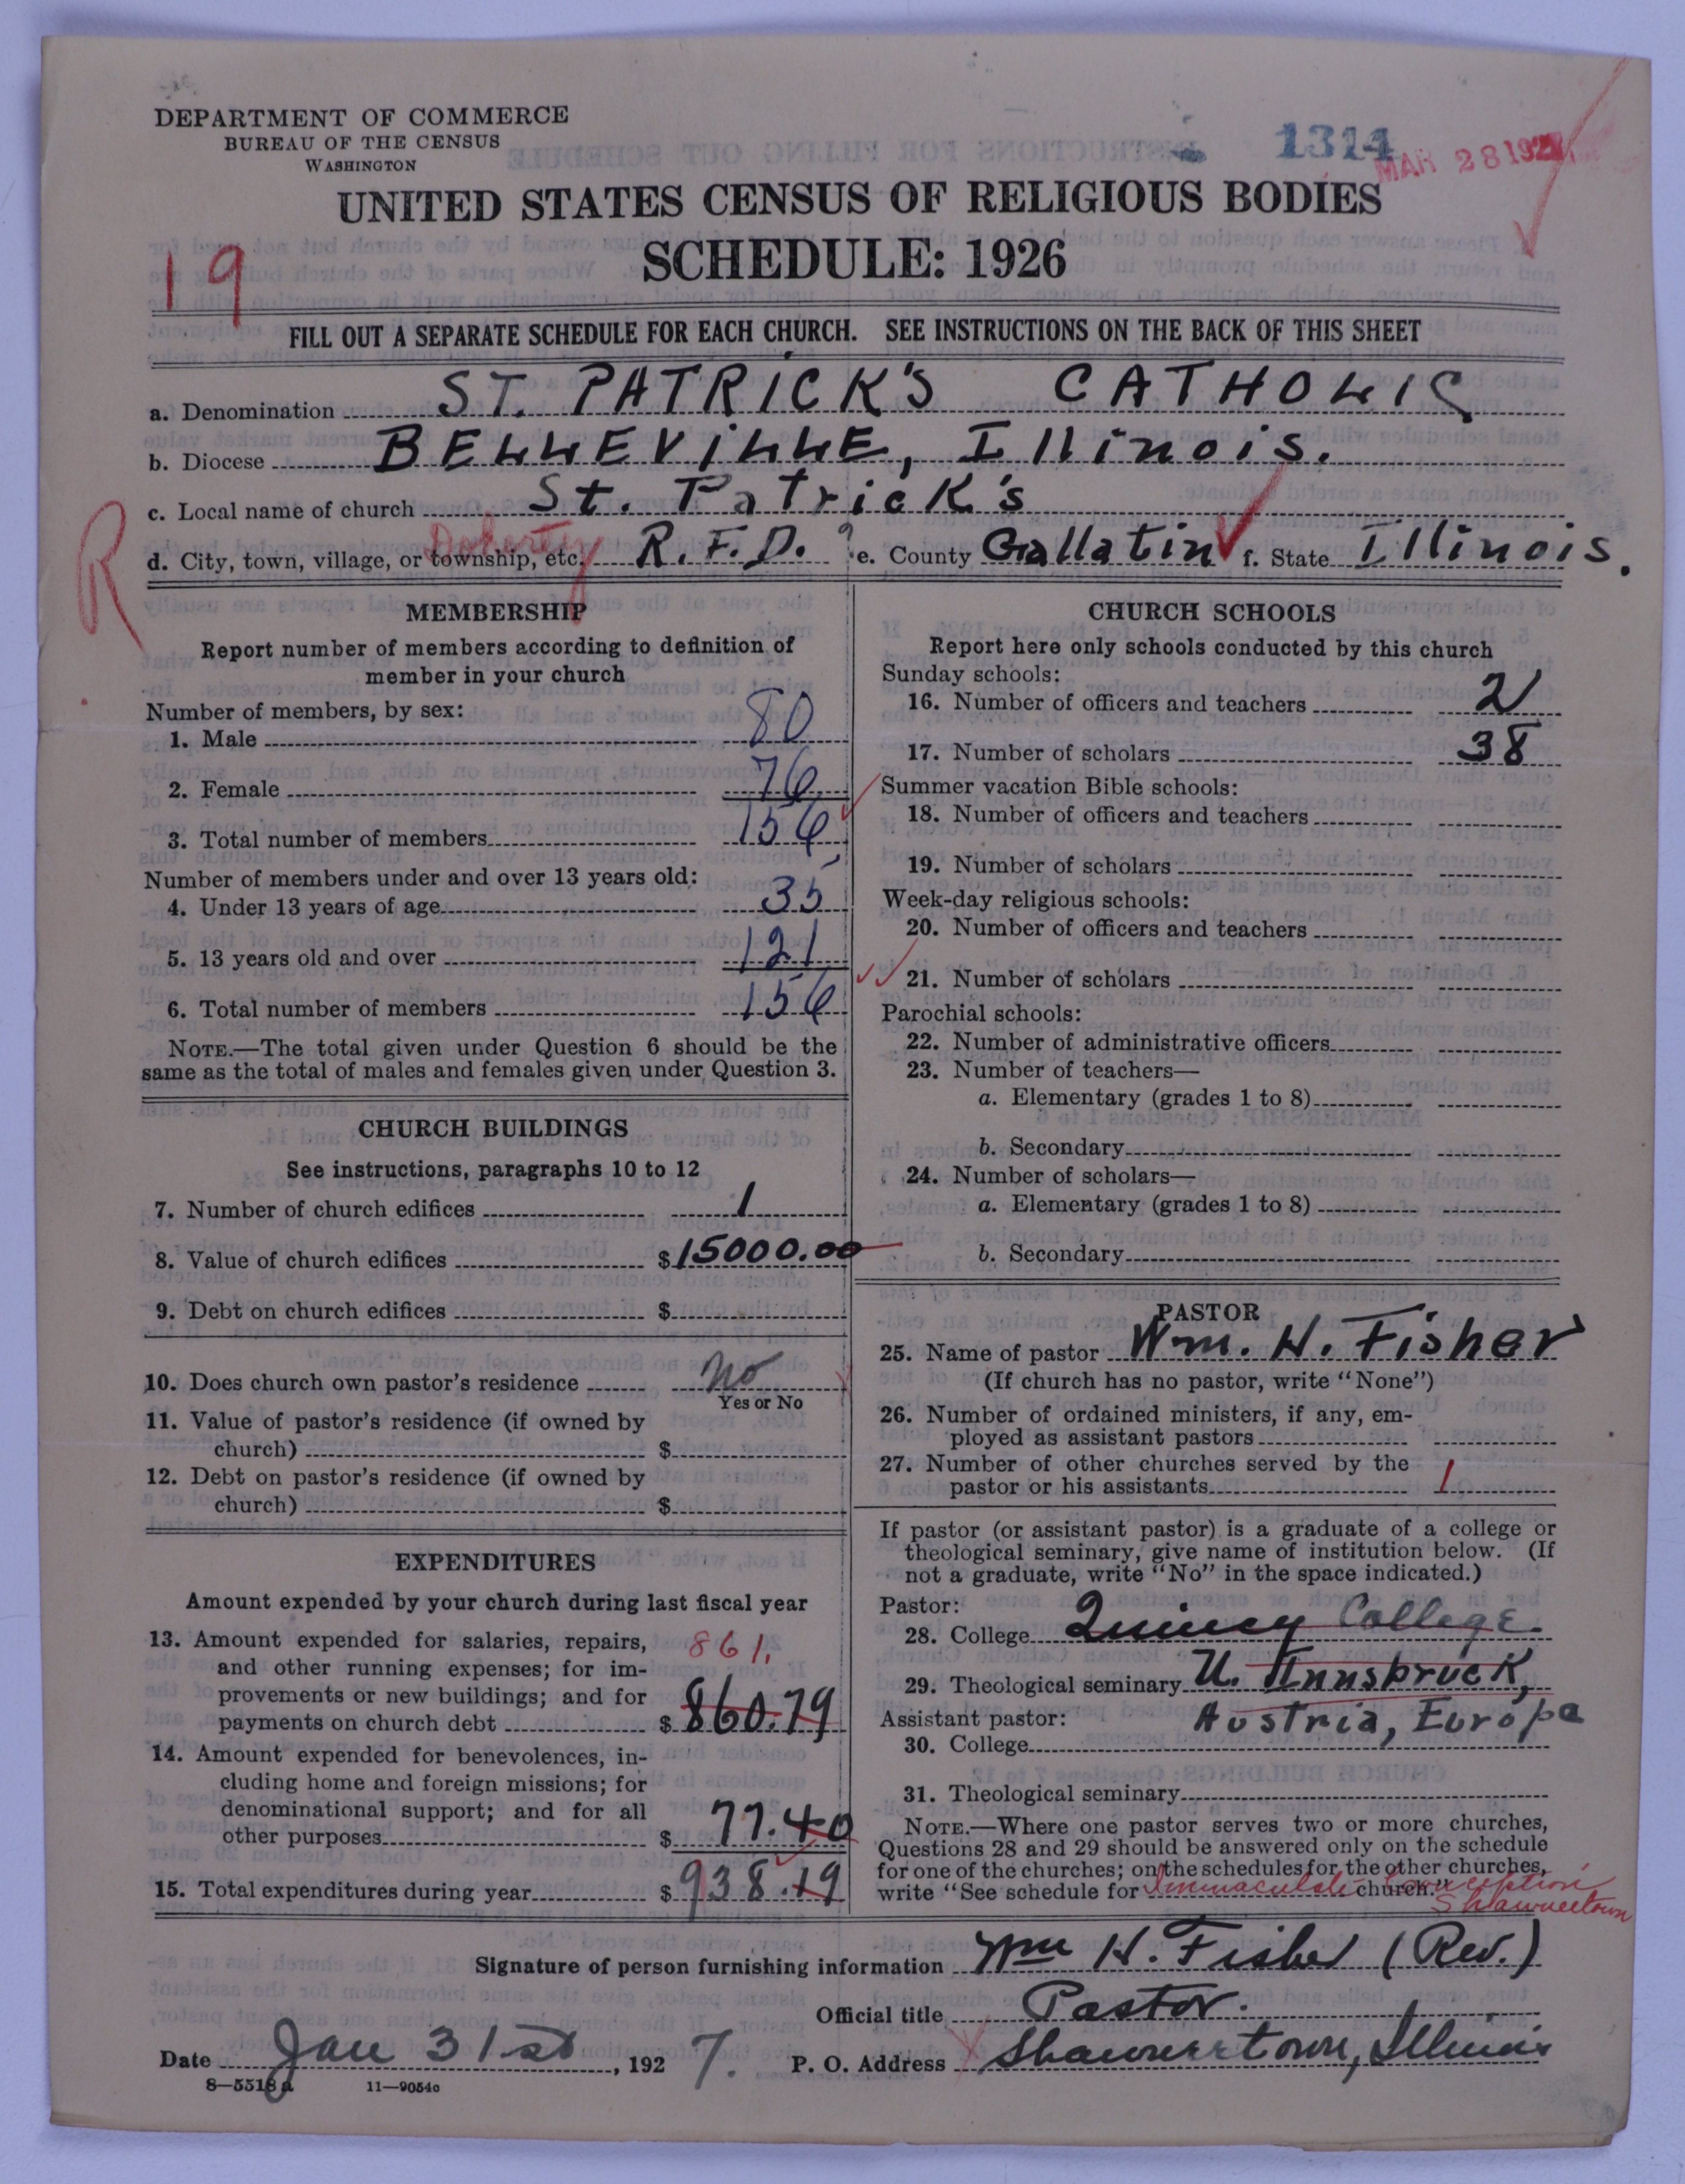 DEPARTMENT OF COMMERCE
BUREAU OF THE CENSUS
WASHINGTON
1314
MAR 28 192
UNITED STATES CENSUS OF RELIGIOUS BODIES
SCHEDULE: 1926
19
FILL OUT A SEPARATE SCHEDULE FOR EACH CHURCH. SEE INSTRUCTIONS ON THE BACK OF THIS SHEET
a. Denomination ST. PATRICK'S CATHOLIC
b. Diocese BELLEVILLE, Illinois.
c. Local name of church St. Patrick's
R
Doherty
d. City, town, village, or township, etc. R.F.D. ? e. County Gallatin f. State Illinois.
MEMBERSHIP
Report number of members according to definition of
member in your church
Number of members, by sex:
1. Male 80
2. Female 76
3. Total number of members 156
Number of members under and over 13 years old:
4. Under 13 years of age 35
5. 13 years old and over 121
6. Total number of members 156
NOTE.—The total given under Question 6 should be the
same as the total of males and females given under Question 3.
CHURCH BUILDINGS
See instructions, paragraphs 10 to 12
7. Number of church edifices 1
8. Value of church edifices $15000.00
9. Debt on church edifices $
10. Does church own pastor's residence No
Yes or No
11. Value of pastor's residence (if owned by
church) $
12. Debt on pastor's residence (if owned by
church) $
EXPENDITURES
Amount expended by your church during last fiscal year
13. Amount expended for salaries, repairs, 861.
and other running expenses; for im-
provements or new buildings; and for
payments on church debt $ 860.79
14. Amount expended for benevolences, in-
cluding home and foreign missions; for
denominational support; and for all
other purposes $ 77.40
15. Total expenditures during year $ 938.19
CHURCH SCHOOLS
Report here only schools conducted by this church
Sunday schools:
16. Number of officers and teachers 2
17. Number of scholars 38
Summer vacation Bible schools:
18. Number of officers and teachers
19. Number of scholars
Week-day religious schools:
20. Number of officers and teachers
21. Number of scholars
Parochial schools:
22. Number of administrative officers
23. Number of teachers—
a. Elementary (grades 1 to 8)
b. Secondary
24. Number of scholars—
a. Elementary (grades 1 to 8)
b. Secondary
PASTOR
25. Name of pastor Wm. H. Fisher
(If church has no pastor, write "None")
26. Number of ordained ministers, if any, em-
ployed as assistant pastors
27. Number of other churches served by the
pastor or his assistants 1
If pastor (or assistant pastor) is a graduate of a college or
theological seminary, give name of institution below. (If
not a graduate, write "No" in the space indicated.)
Pastor:
28. College Quincy College
29. Theological seminary U. Innsbruck,
Austria, Europa
Assistant pastor:
30. College
31. Theological seminary
NOTE.—Where one pastor serves two or more churches,
Questions 28 and 29 should be answered only on the schedule
for one of the churches; on the schedules for the other churches,
write "See schedule for Immaculate Conception church."
Shawneetown
Signature of person furnishing information Wm H. Fisher (Rev.)
Official title Pastor.
Date Jan 31st, 1927. P. O. Address Shawneetown, Illinois
8—5518a 11—9054c